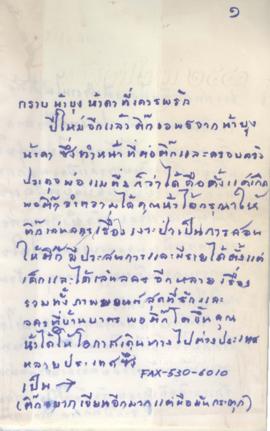 ๑
กราบ น้ายุง น้าดา ที่เคารพรัก
ปีใหม่อีกแล้ว ติ๊กขอพรจากน้ายุง
น้าดา ซึ่งทำหน้าที่ต่อติ๊กและครอบครัว
ประดุจพ่อแม่ที่ ก็ว่าได้ คือตั้งแต่เกิด
พอติ๊กจำความได้คุณน้าได้กรุณาให้
ติ๊กเล่นละครเรื่อง เงาะป่า เป็นการสอน
ให้ติ๊ก มีประสบการและมีรายได้ตั้งแต่
เด็กและได้เล่นละคร อีกหลายเรื่อง
รวมทั้ง ภาพยนต์ สุดที่รักและ
ละครที่บ้านบาตร พอติ๊กโตขึ้นคุณ
น้าได้ให้โอกาสเดินทางไปต่างประเทศ
หลายประเทศซึ่ง
FAX-530-6010
เป็น →
(ติ๊กอยากเขียนอีกมากแต่มือมันกระตุก)